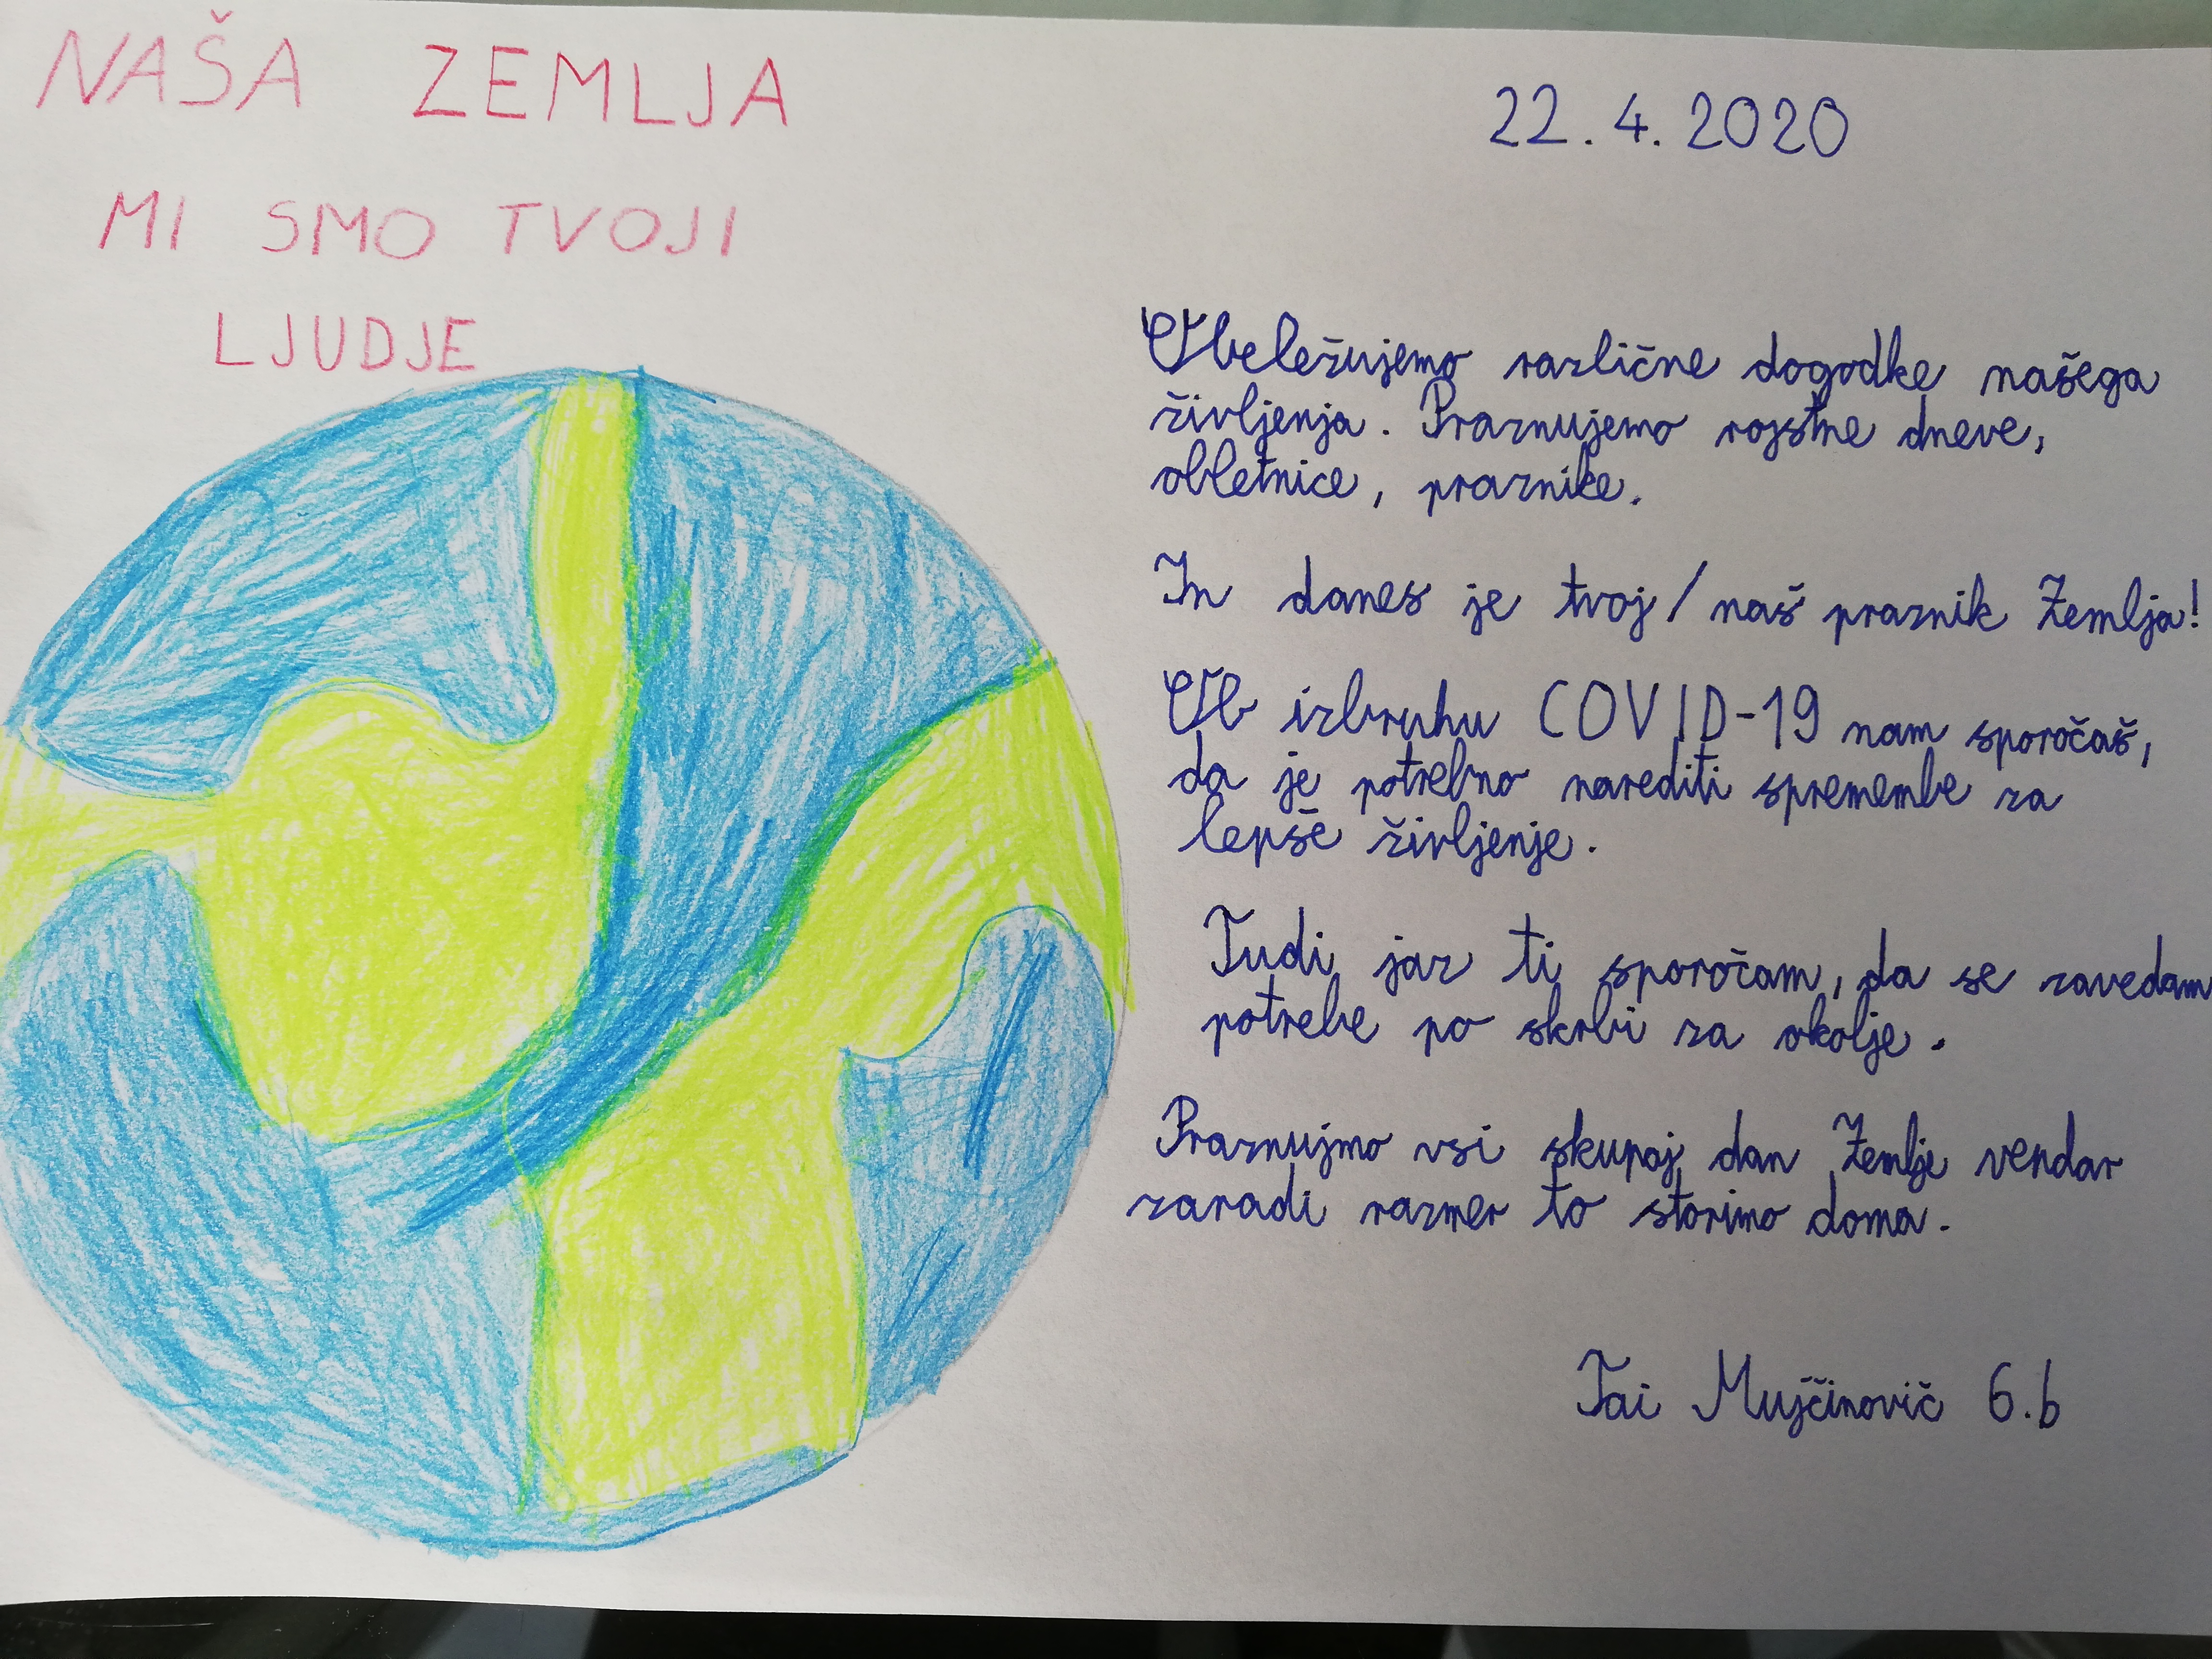 NAŠA ZEMLJA
MI SMO TVOJI
LJUDJE
22.4.2020
Obeležujemo različne dogodke našega
življenja. Praznujemo rojstne dneve,
obletnice, praznike.
In danes je tvoj/naš praznik Zemlja!
Ob izbruhu COVID-19 nam sporočaš,
da je potrebno narediti spremembe za
lepše življenje.
Tudi jaz ti sporočam, da se zavedam
potrebe po skrbi za okolje.
Praznujmo vsi skupaj dan Zemlje vendar
zaradi razmer to storimo doma.
Tai Mujčinovič 6.b